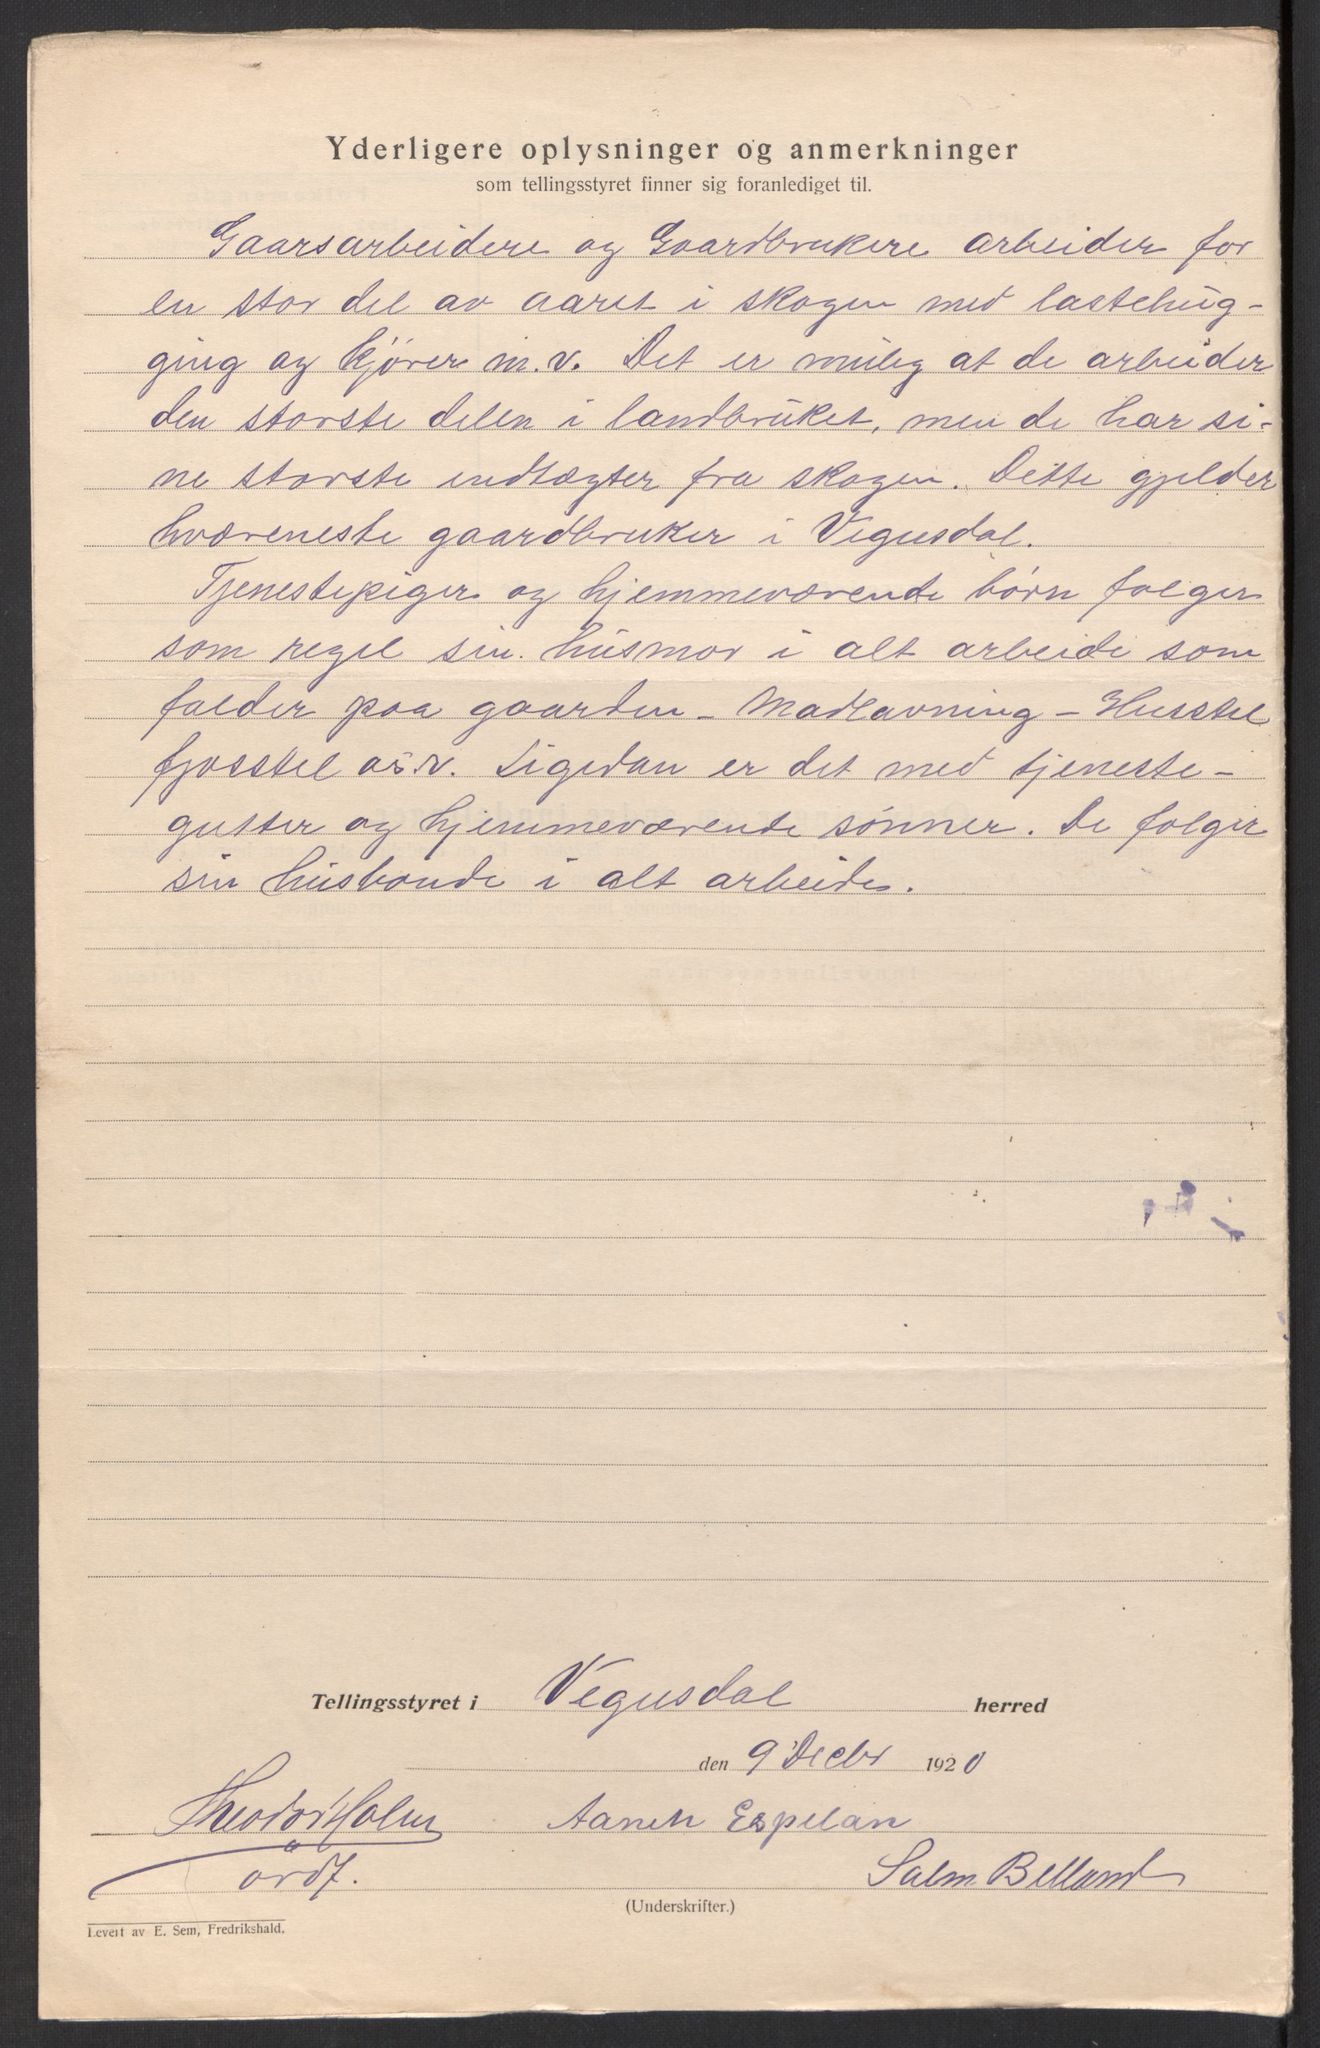 Yderligere oplysninger og anmerkninger
som tellingsstyret finner sig foranlediget til.
Gaarsarbeidere og Gaardbrukere arbeider for
en stor del av aaret i skogen med lastehug-
ging og kjörer m.v. Det er mulig at de arbeider
den storste delen i landbruket, men de har si-
ne storste indtægter fra skogen. Dette gjelder
hværeneste gaardbruker i Vegusdal.
Tjenestepiger og hjemmeværende börn folger
som regel sin husmor i alt arbeide som
falder paa gaarden - Madlavning - Husstel
fjosstel o.s.v. Ligedan er det med tjeneste-
gutter og hjemmeværende sønner. De folger
sin husbonde i alt arbeide.
Tellingsstyret i Vegusdal herred
den 9 Decbr 1920
Theodor Holm Aanen Espelan
ordf. Salm. Belland
(Underskrifter.)
Levert av E. Sem, Fredrikshald.